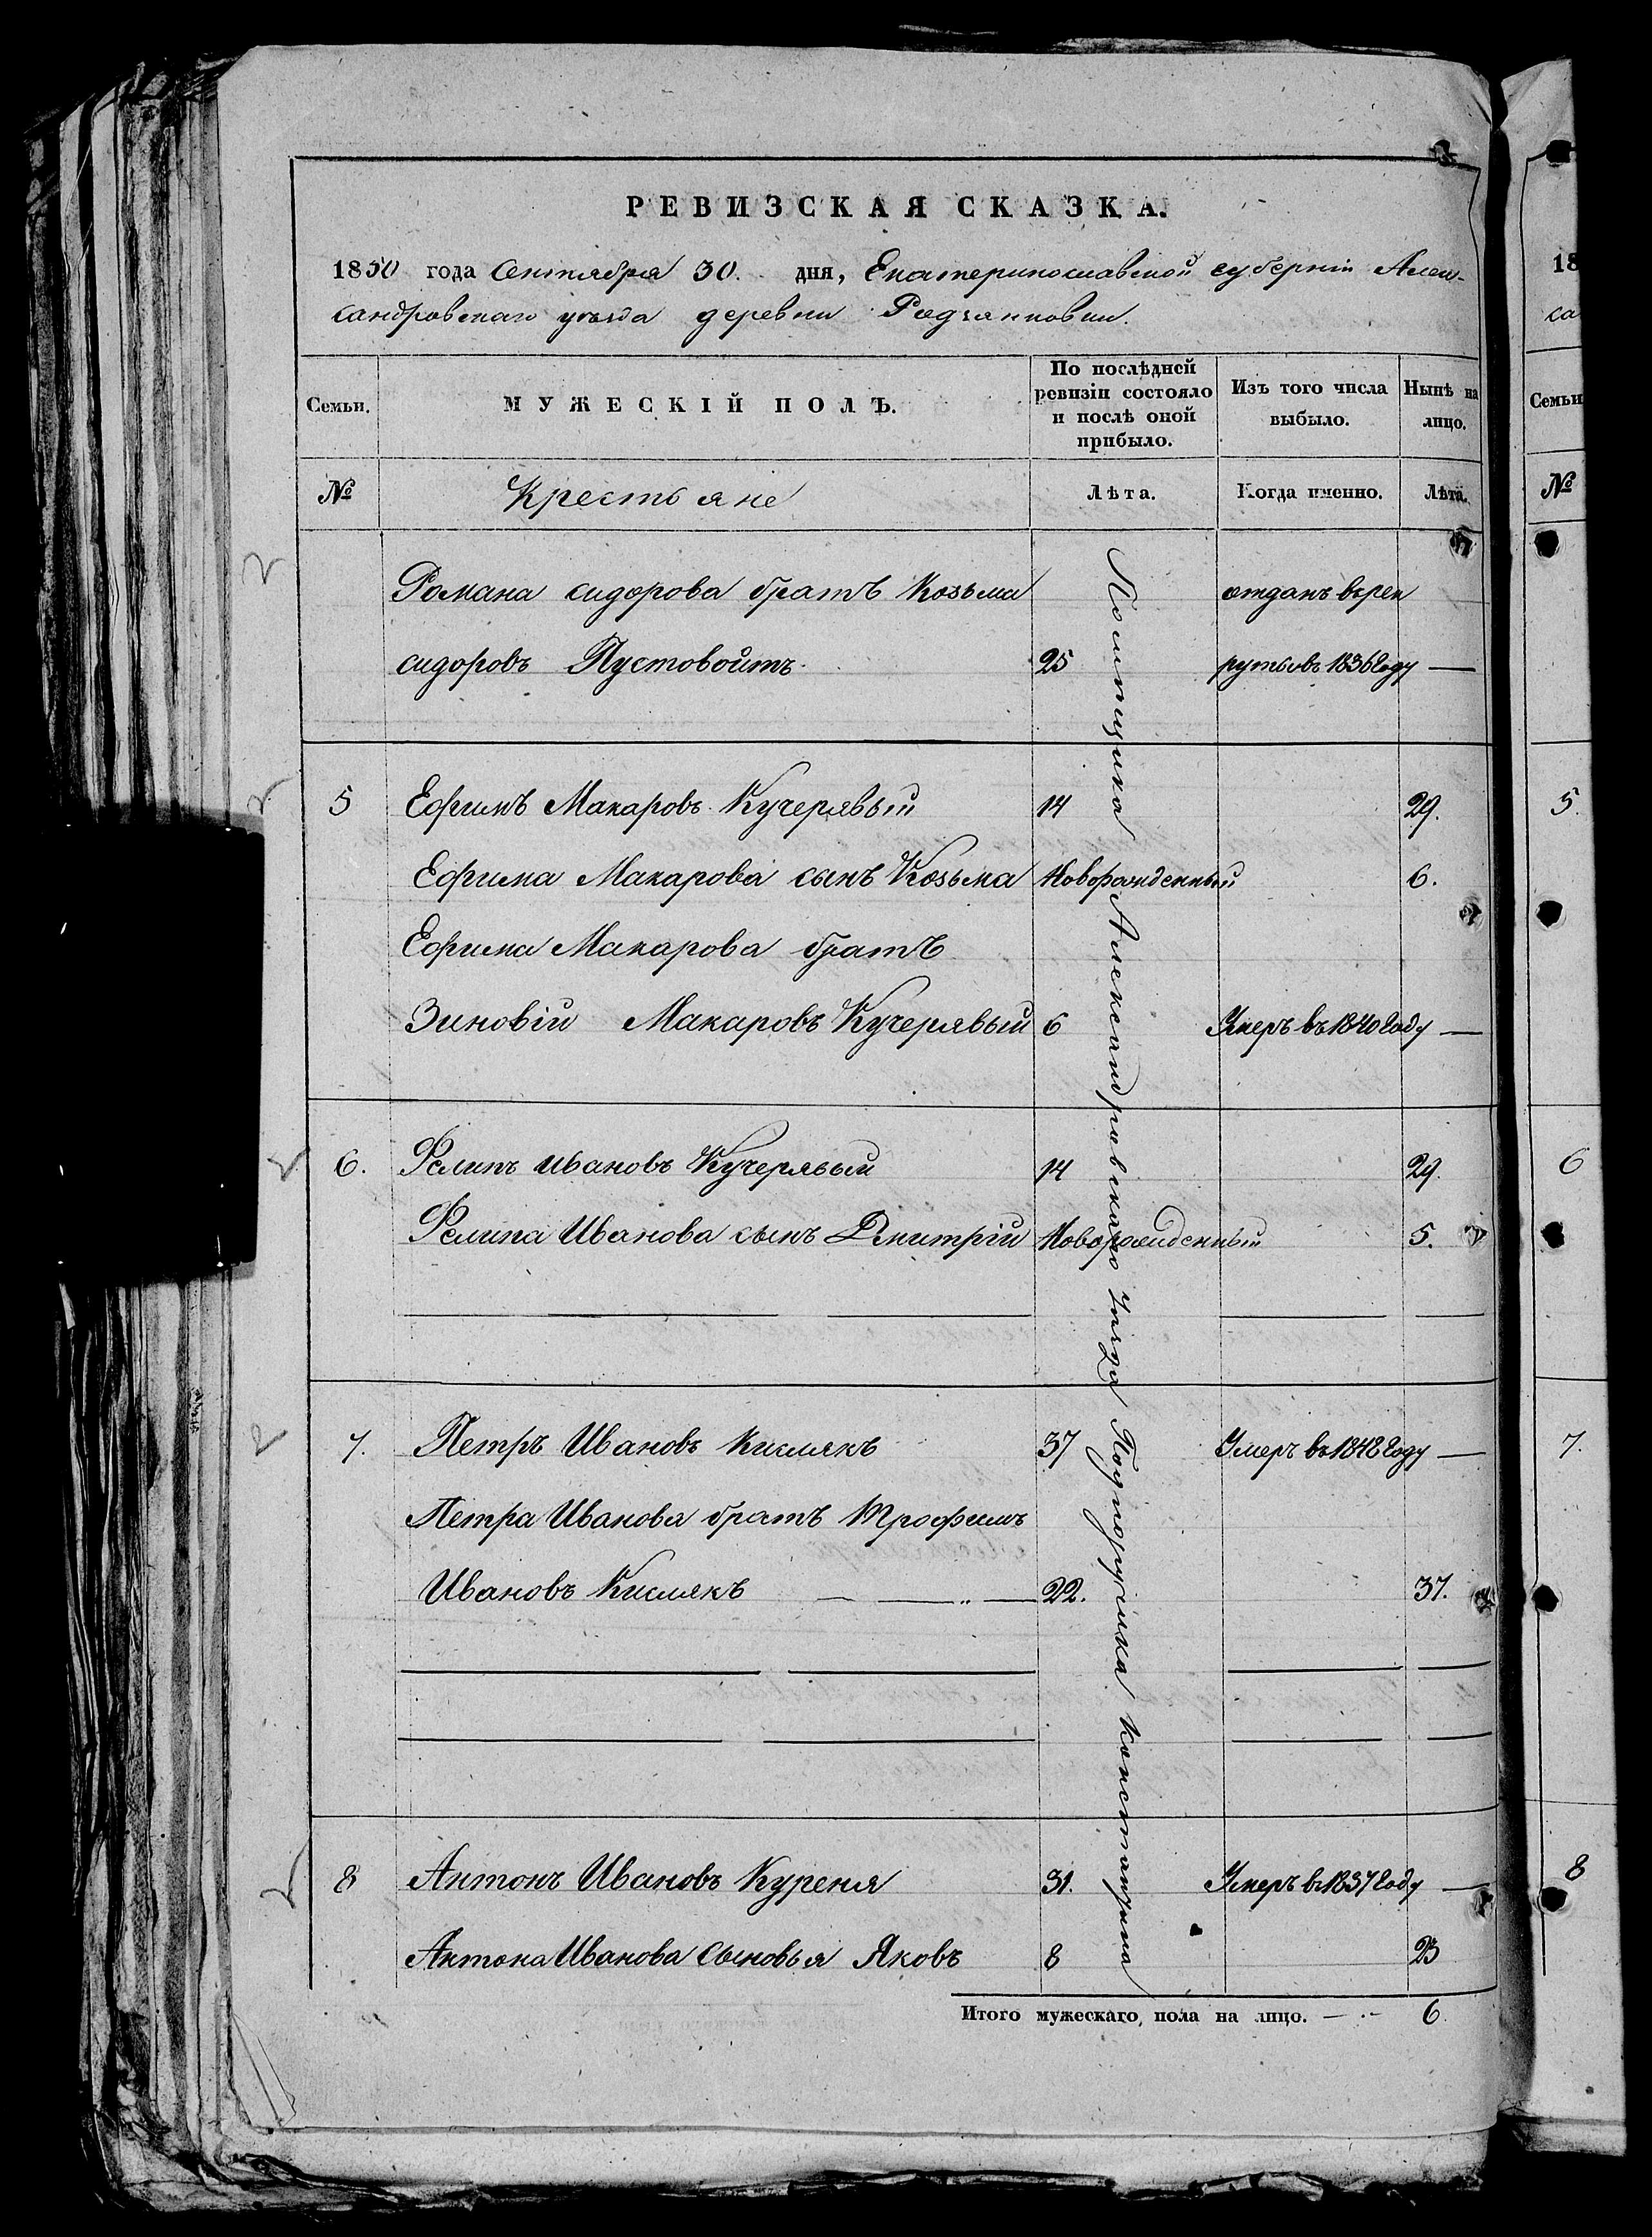 РЕВИЗСКАЯ СКАЗКА.
1850 года Сентября 30. дня, Екатеринославской губерніи Алек-
сандровскаго уѣзда деревни Родзянковки.
Семьи.
МУЖЕСКІЙ ПОЛЪ.
По послѣдней
ревизіи состояло
и послѣ оной
прибыло.
Изъ того числа
выбыло.
Нынѣ на
лицо.
№ Крестьяне Лѣта. Когда именно. Лѣта.
Романа сидорова братъ Козьма отданъ врек
сидоровъ Пустовойтъ 25 рутывъ 1836 году —
5 Ефимъ Макаровъ Кучерявый 14 29.
Ефима Макарова сынъ Козьма Новорожденный 6.
Ефима Макарова братъ
Зиновій Макаровъ Кучерявый 6 Умеръ въ 1840 году —
6. Филипъ Ивановъ Кучерявый 14 29
Филипа Иванова сынъ Дмитрій Новорожденный 5.
7. Петръ Ивановъ Кислякъ 37 Умеръ въ 1848 году —
Петра Иванова братъ Трофимъ
Ивановъ Кислякъ 22. 37.
8 Антонъ Ивановъ Куреня 31. Умеръ въ 1837 году —
Антона Иванова сыновья Яковъ 8 23
Итого мужескаго пола на лицо. — 6.
Помѣщика Александровскаго уѣзда Подпоручика Константина
18
ка
Семьи
№
5.
6
7.
8